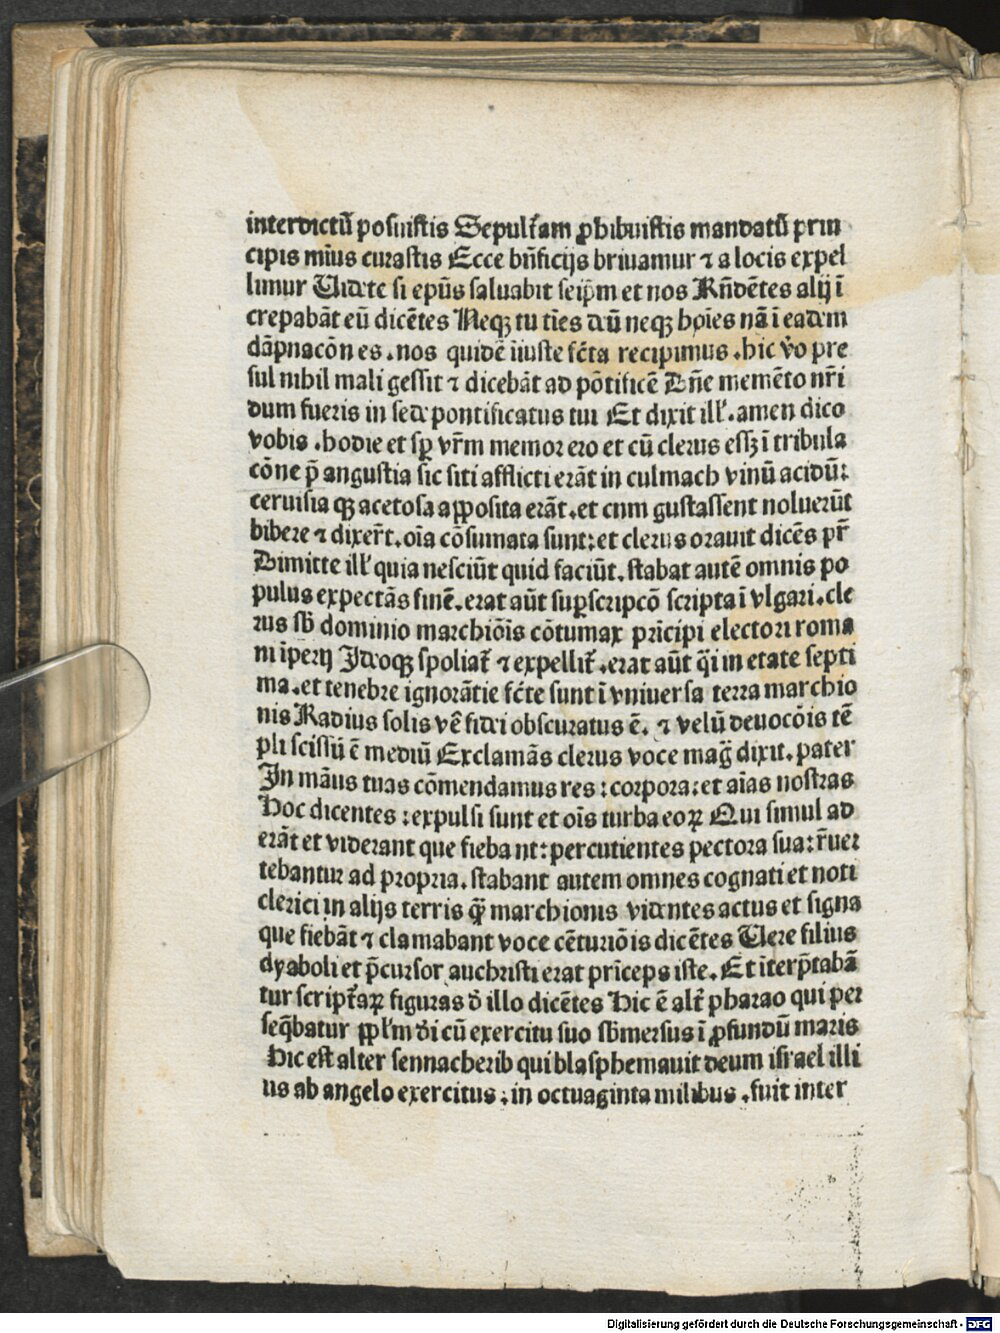 interdictū posuistis Sepulťam ꝓhibuistis mandatū prin
cipis miꝰus curastis Ecce bn̄ficijs briuamur ⁊ a locis expel
limur Uidete si epūs saluabit seip̄m et nos Rn̄dētes alij ī
crepabāt eū dicētes Neqꝫ tu tīes deū neqꝫ hoīes nā ī eadem
dāpnacōn es . nos quidē īiuste fc̄ta recipimus . hic v̄o pre
sul nihil mali gessit ⁊ dicebāt ad pōtificē Dn̄e memēto nr̄i
dum fueris in sede pontificatus tui Et dixit ill' . amen dico
vobis . hodie et sꝑ vr̄m memor ero et cū clerus essꝫ ī tribula
cōne p̄ angustia sic siti afflicti erāt in culmach vinū acidū:
ceruisia qꝫ acetosa apposita erāt . et cnm gustassent noluerūt
bibere ⁊ dixer̄t . oīa cōsumata sunt: et clerus orauit dicēs pr̄
Dimitte ill' quia nesciūt quid faciūt . stabat autē omnis po
pulus expectās finē . erat aūt suꝑscripcō scripta ī vlgari . cle
rus sb̄ dominio marchiōis cōtumax prīcipi electori roma
ni īperij Ideoqꝫ spoliat̄ ⁊ expellit̄ . erat aūt q̄i in etate septi
ma . et tenebre ignorātie fc̄te sunt ī vniuersa terra marchio
nis Radius solis vē fidei obscuratus ē . ⁊ velū deuocōis tē
pli scissū ē mediū Exclamās clerus voce maḡ dixit . pater
In manꝰus tuas cōmendamus res : corpora: et aīas nostras
Hoc dicentes : expulsi sunt et oīs turba eoꝝ Qui simul ad
erāt et viderant que fiebant: percutientes pectora sua: r̄uer
tebantur ad propria . stabant autem omnes cognati et noti
clerici in alijs terris q̄ꝫ marchionis videntes actus et signa
que fiebāt ⁊ clamabant voce cēturiōis dicētes Uere filius
dyaboli et p̄cursor auchristi erat prīceps iste . Et īterp̄tabā
tur scripťaꝝ figuras d̄ illo dicētes Hic ē alt̄ pharao qui per
seq̄batur ppl̄m dī cū exercitu suo sb̄mersus ī ꝓfundū maris
Hic est alter sennacherib qui blasphemauit deum israel illi
us ab angelo exercitus : in octuaginta milibus . fuit inter
Digitalisierung gefördert durch die Deutsche Forschungsgemeinschaft - DFG